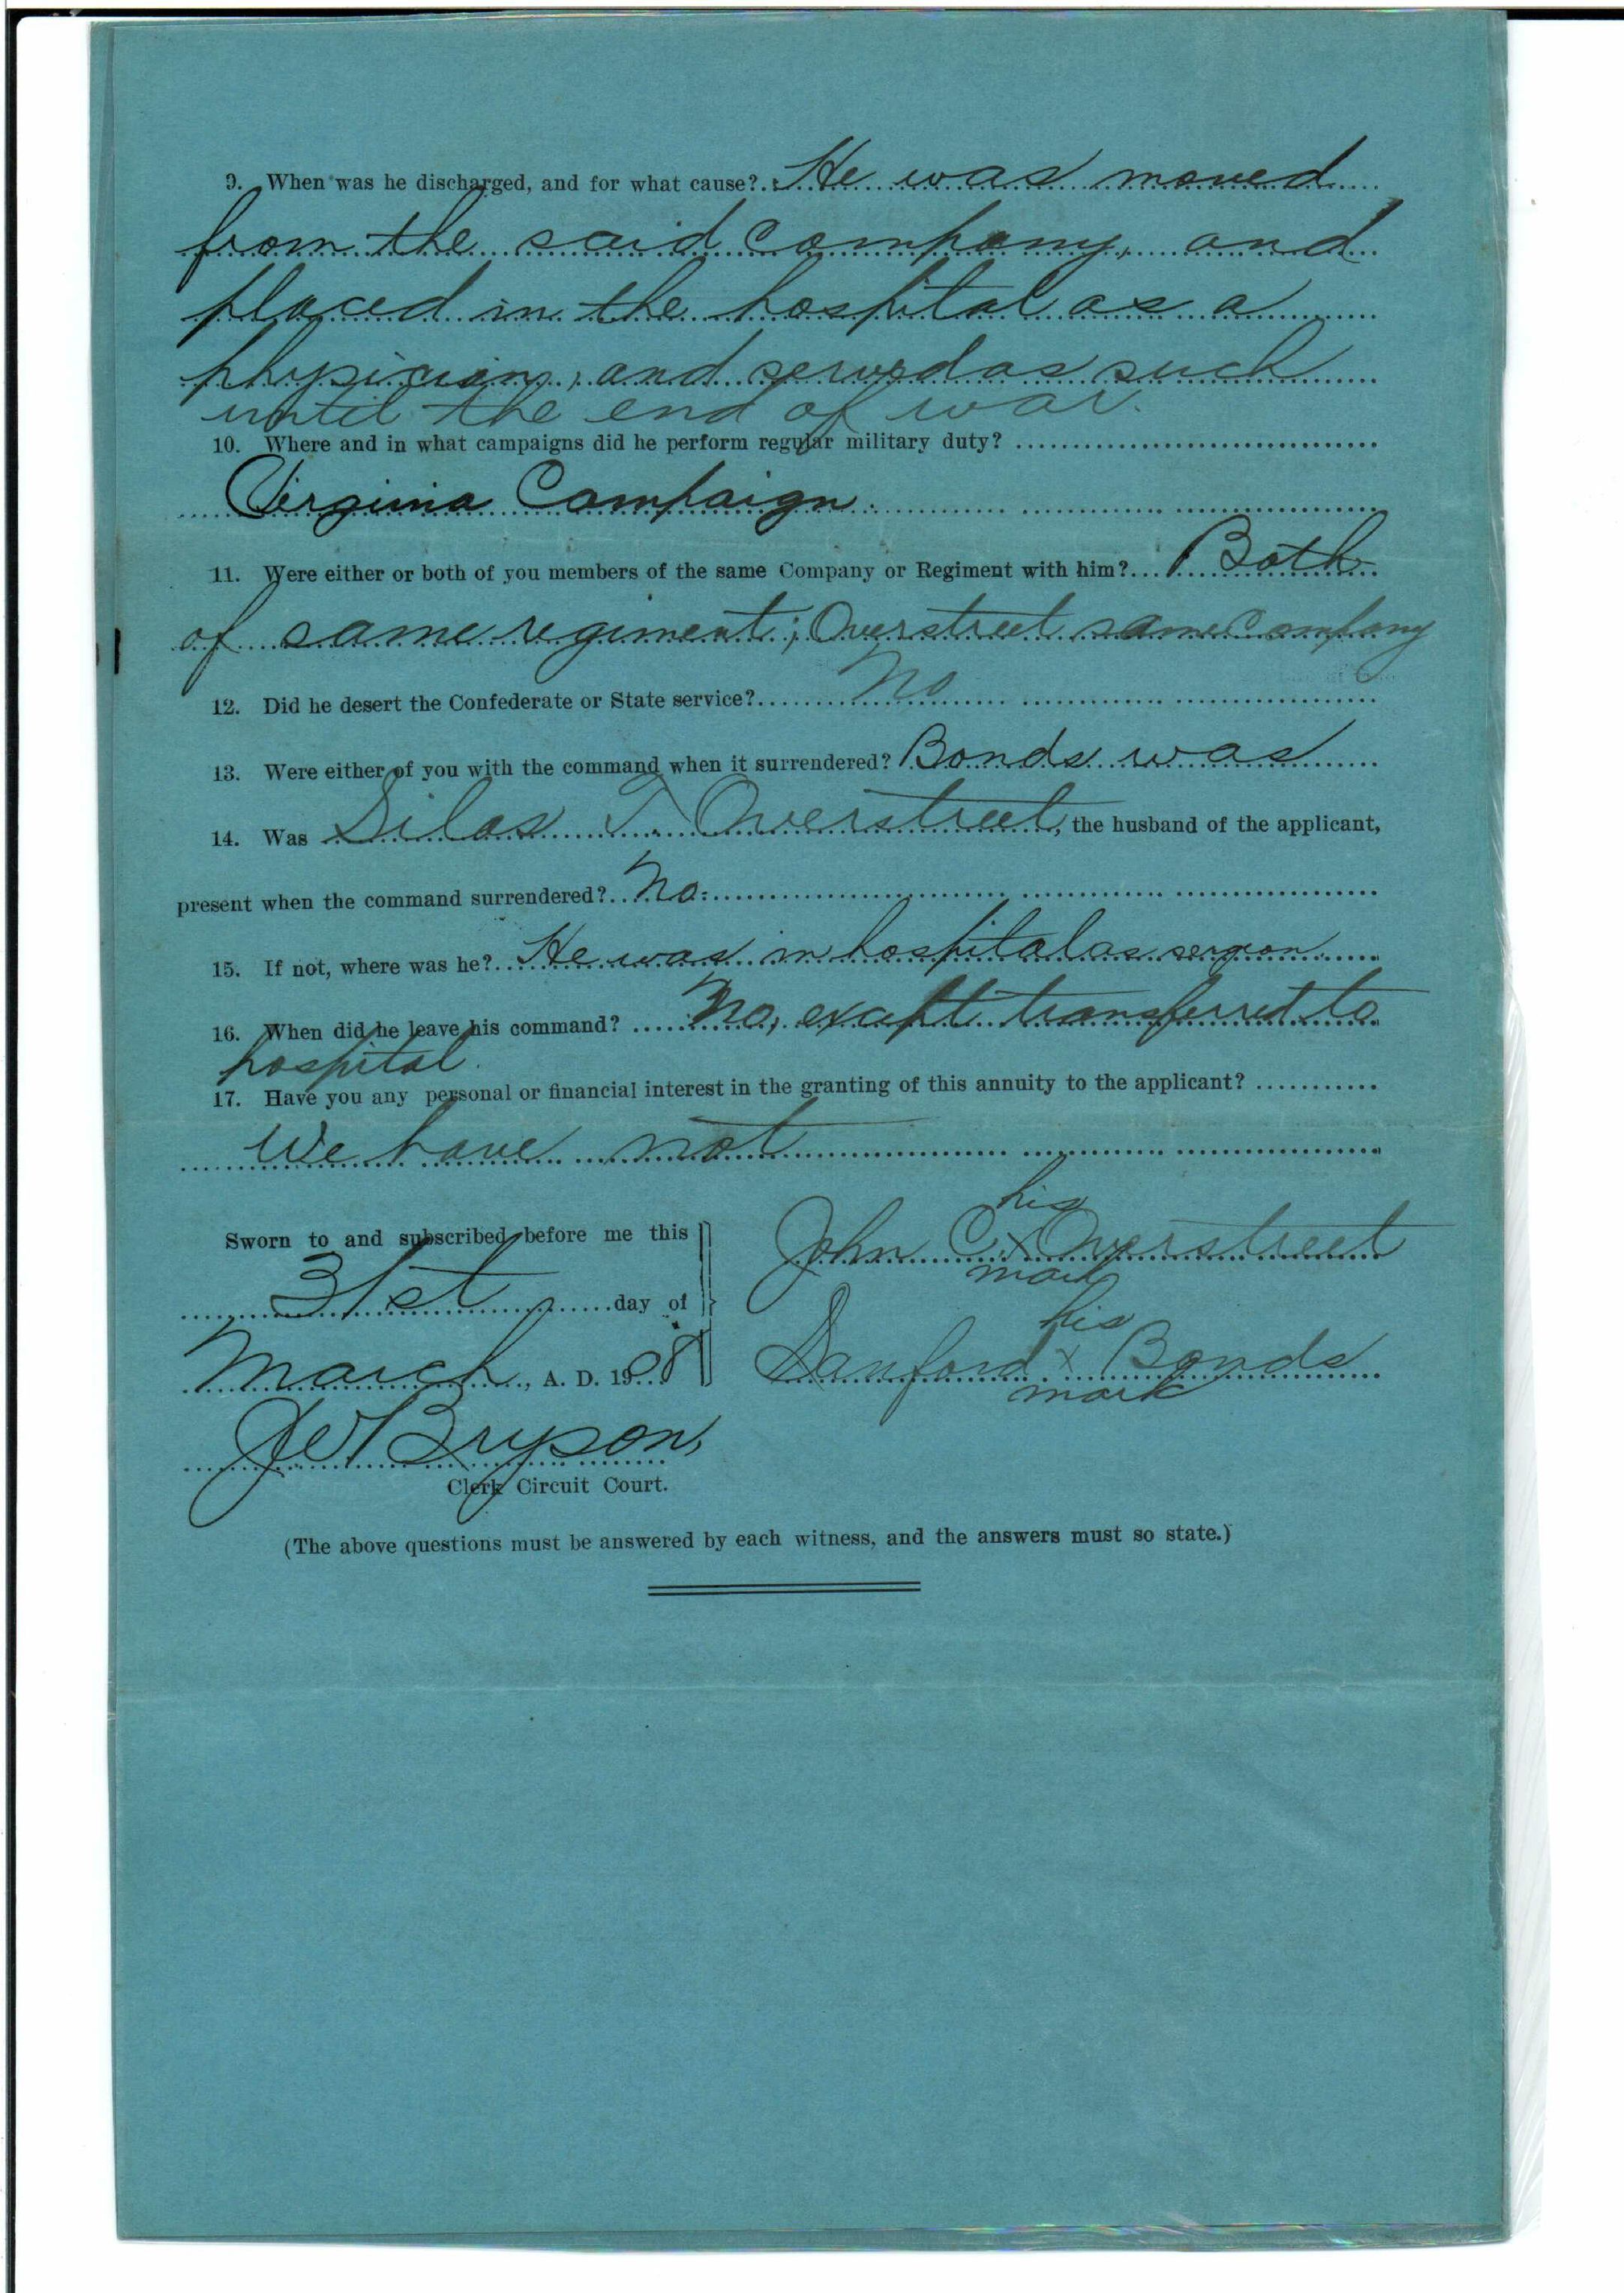 9. When was he discharged, and for what cause? He was moved
from the said Company, and
placed in the hospital as a
physician, and served as such
until the end of war.
10. Where and in what campaigns did he perform regular military duty?
Virginia Campaign
11. Were either or both of you members of the same Company or Regiment with him? Both
of same regiment; Overstreet same Company
12. Did he desert the Confederate or State service? No
13. Were either of you with the command when it surrendered? Bonds was
14. Was Silas T. Overstreet, the husband of the applicant,
present when the command surrendered? No.
15. If not, where was he? He was in hospital as sergeon
16. When did he leave his command? No, except transferred to
hospital.
17. Have you any personal or financial interest in the granting of this annuity to the applicant?
We have not
Sworn to and subscribed before me this
31st day of
March, A. D. 1908
his
John C. x Overstreet
mark
his
Sanford x Bonds
mark
JW Bryson,
Clerk Circuit Court.
(The above questions must be answered by each witness, and the answers must so state.)